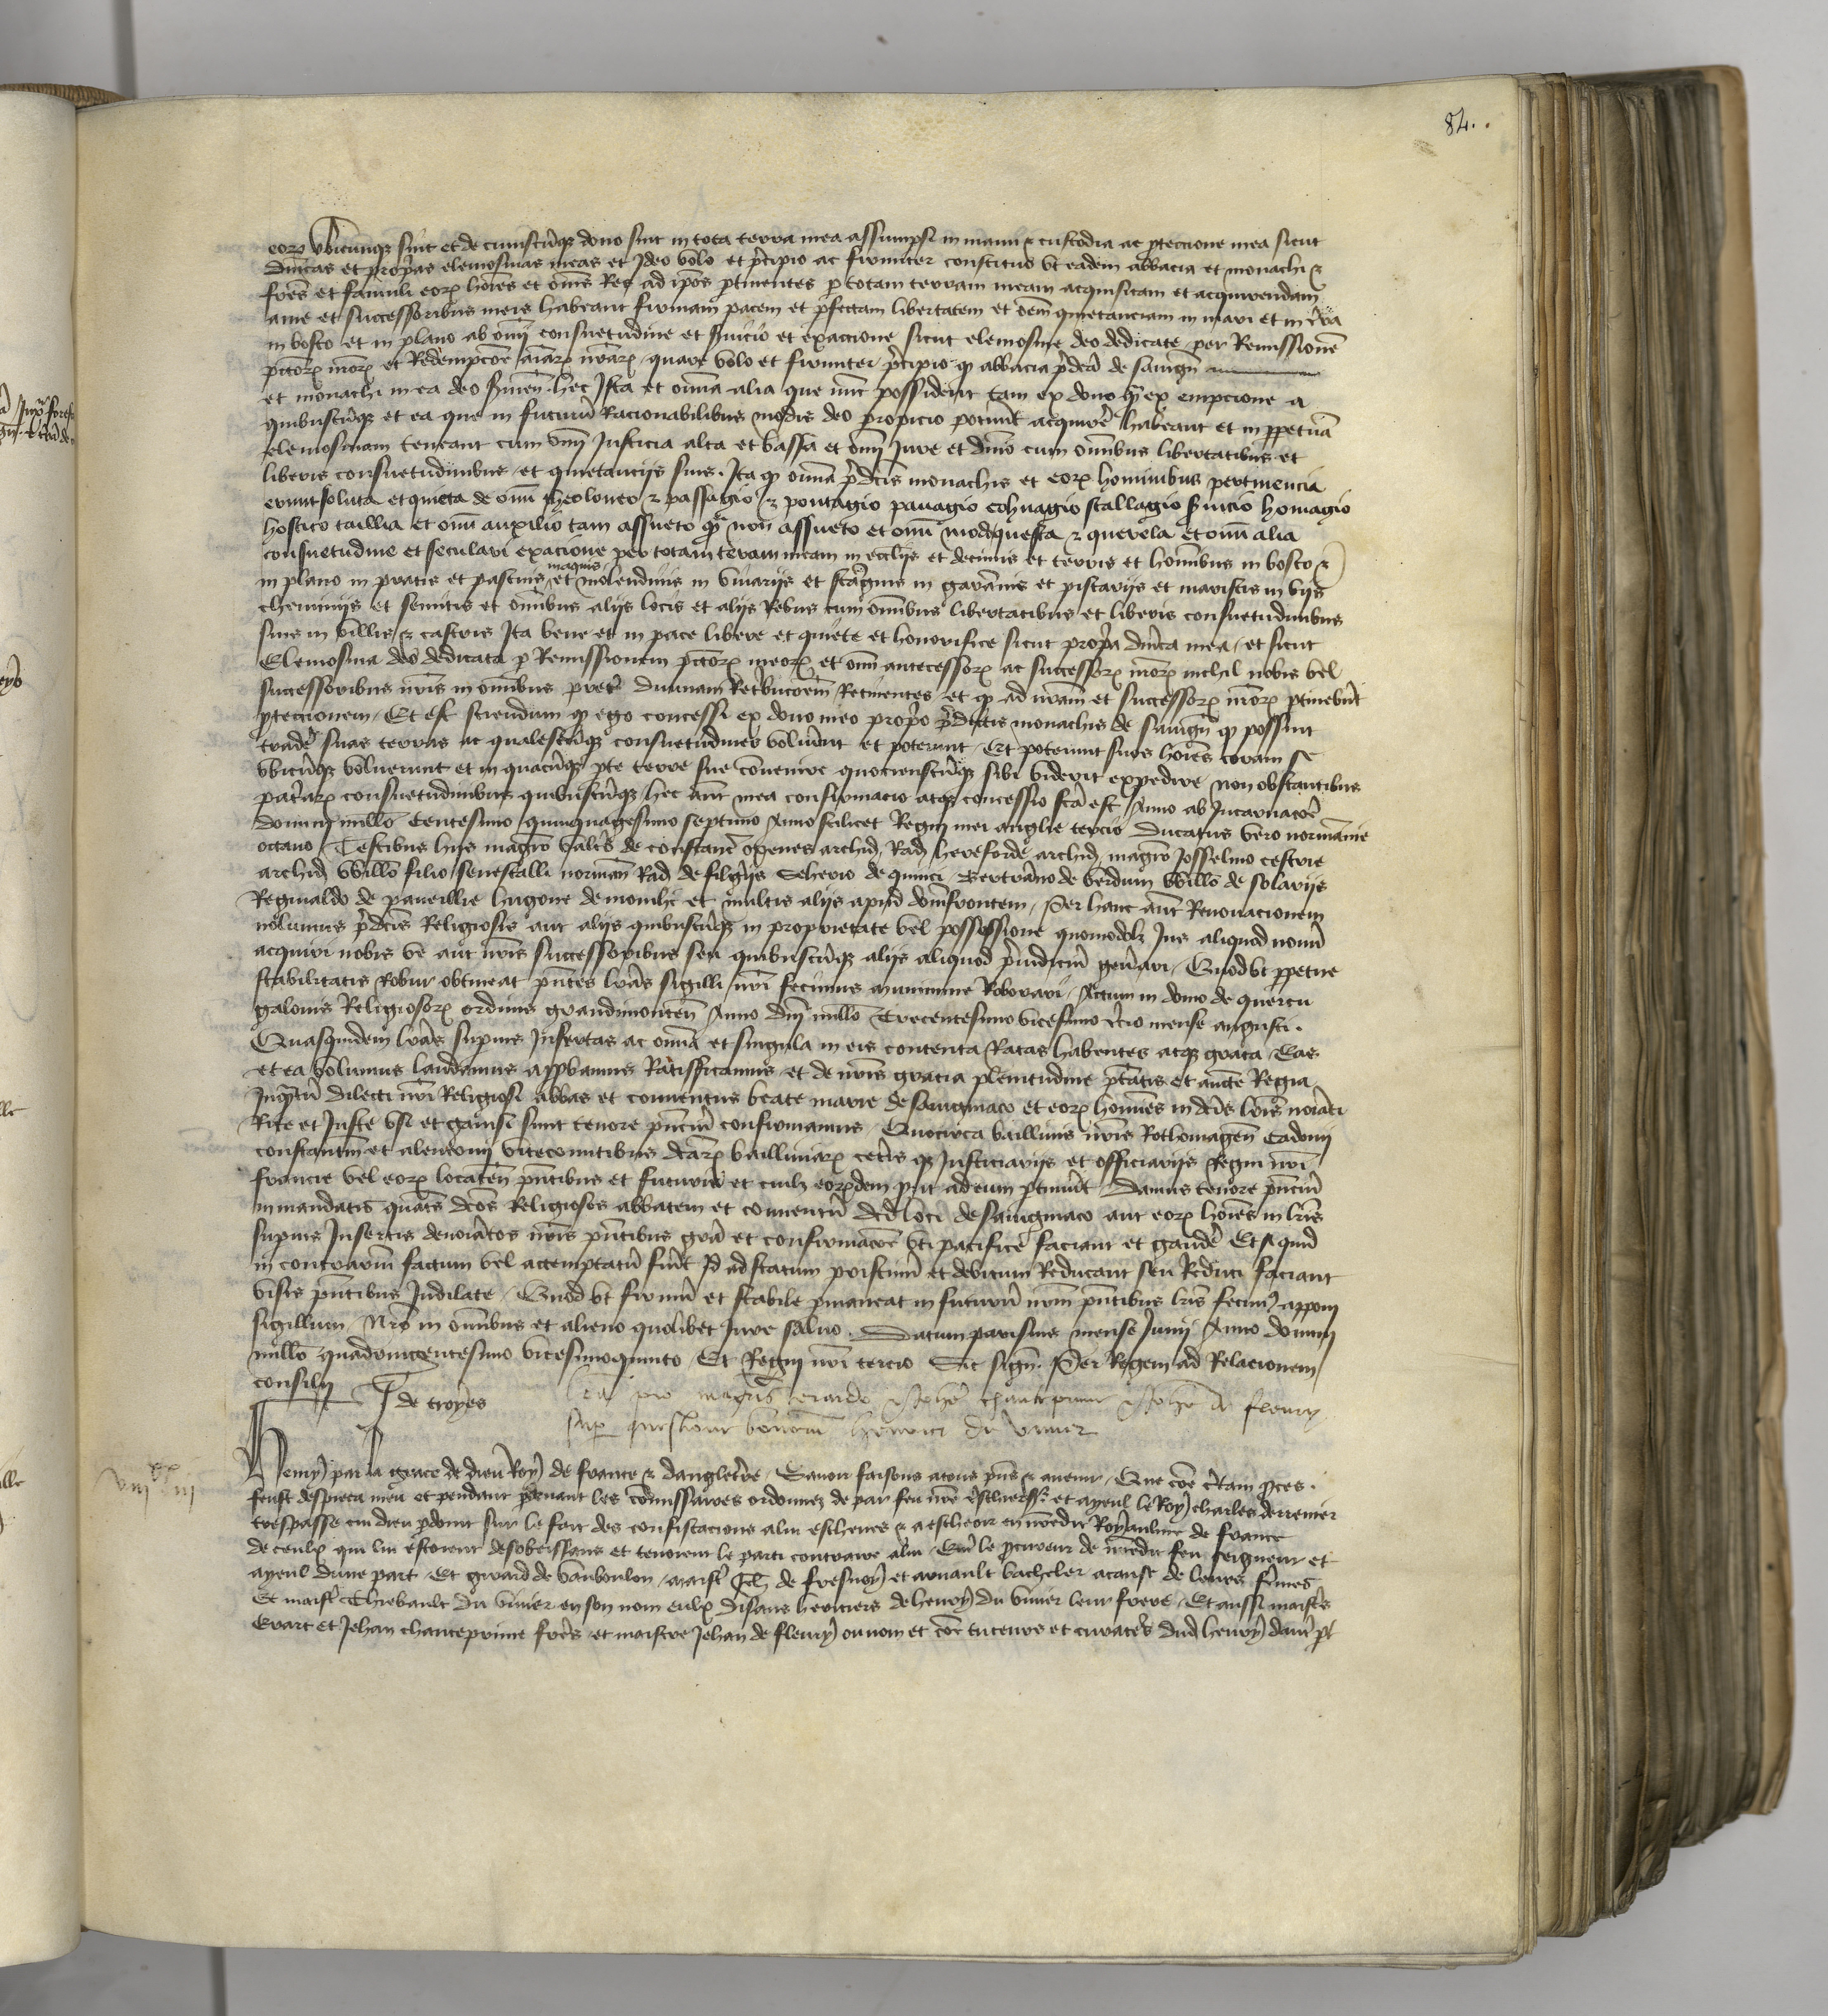 84.
eorum ubicunque sint et de cuiuscunque dono sint in tota terra mea assumpsi in manu et custodia ac protectione mea sicut
dominicas et proprias elemosinas meas et Ideo volo et precipio ac firmiter constituo ut eadem abbacia et monachi et
fratres et famuli eorum homines et omnes Res ad ipsos pertinentes per totam terram meam acquisitam et acquirendam
a me et successoribus meis habeant firmam pacem et perfectam libertatem et omnem quietanciam in mari et in terra
in bosco et in plano ab omni consuetudine et servicio et exaccione sicut elemosine deo dedicate per Remissionem
peccatorum meorum et Redempcione animarum nostrarum quare volo et firmiter precipio quod abbacia predicta de savigneio
et monachi in ea deo servientes hec Ista et omnia alia que nunc possident tam ex dono quam ex empcione a
quibuscunque et ea que in futurum Racionabilibus modis deo propicio poterunt acquirere habeant et in perpetuam
elemosinam teneant cum omni Justicia alta et bassa et omni Jure et dominio cum omnibus libertatibus et
liberis consuetudinibus et quietanciis suis. Ita quod omnia predictis monachis et eorum hominibus pertinencia
erunt soluta et quieta de omni theoloneo et passagio et pontagio panagio cohuagio stallagio servicio homagio
hostico taillia et omni auxilio tam assueto quam non assueto et omni modo questa et querela et omni alia
consuetudine et seculari exacione per totam terram meam in ecclesiis et decimis et terris et hominibus in bosco et
in plano in pratis et pascuis in aquis et molendinis in vivariis et stagnis in garannis et piscariis et mariscis in viis
cheminiis et semitis et omnibus aliis locis et aliis Rebus cum omnibus libertatibus et liberis consuetudinibus
suis in villis et castris Ita bene et in pace libere et quiete et honorifice sicut propria dominica mea et sicut
Elemosina deo dedicata per Remissionem peccatorum meorum et omnium antecessorum ac successorum meorum nichil nobis vel
successoribus nostris in omnibus preter divinam Retribucionem Retinentes et quod ad nostram et successorum meorum pertinebunt
protectionem Et est sciendum quod ego concessi ex dono meo proprio predictis monachis de savigneio quod possint
tradere suas terras ac qualescunque consuetudines voluerint et poterunt Et poterunt suos homines coram se
ubicunque voluerunt et in quacunque parte terre sue convenire quocienscunque sibi viderit expedire non obstantibus
patriarum consuetudinibus quibuscunque hec autem mea confirmacio atque concessio facta est Anno ab Incarnacione
domini millesimo Centesimo quinquagesimo septimo Anno scilicet Regni mei anglie tercio Ducatus vero normannie
octavo Testibus hiis magistro de constanciis archidiacono Rad hereforde archidiacono magistro Josselmo cestrie
archidiacono Willelmo filio senescalli normannie Rad de filgeriis Seherio de quinci Bertranno de verdum Willelmo de solariis
Reginaldo de paveillie hugone de et multis aliis apud domfrontem Per hanc autem Renovacionem
nolumus predictis Religiosis aut aliis quibuscunque in proprietate vel possessione quomodolibet Jus aliquod novum
acquiri nobis ve aut nostris successoribus seu quibuscunque aliis aliquod preiudicium generari Quod ut perpetue
stabilitatis Robur obtineat presentes litteras sigilli nostri fecimus munimine Roborari Actum in domo de quercu
galonis Religiosorum ordinis grandimontensis Anno domini millesimo Trecentesimo vicesimo tercio mense augusti.
Quasquidem litteras superius Insertas ac omnia et singula in eis contenta Ratas habentes atque grata Eas
et ea volumus laudamus approbamus Ratifficamus et de nostris gracia plenitudine potestatis et auctoritate Regia
Inquantum dilecti nostri Religiosi abbas et conventus beate marie de savigniaco et eorum homines in dictis litteris nominati
Rite et Juste usi et gavisi sunt tenore presencium confirmamus Quocirca baillivis nostris Rothomagensi Cadomi
constanciensi et alenconii vicecomitibus dictarum bailliviarum ceterisque Justiciariis et officiariis Regni nostri
francie vel eorum locatenentibus presentibus et futuris et cuilibet eorumdem prout ad eum pertinuerit Damus tenore presencium
in mandatis quatinus dictos Religiosos abbatem et conventum dicti loci de savigniaco aut eorum homines in litteris
superius Insertis denominatos nostris presentibus gracia et confirmacione uti pacifice faciant et gaudere Et si quid
in contrarium factum vel attemptatum fuerit Id ad statum pristinum et debitum Reducant seu Reduci faciant
visis presentibus Indilate Quod ut firmum et stabile permaneat in futurum nostrum presentibus litteris fecimus apponi
sigillum Nostro in omnibus et alieno quolibet Jure salvo. Datum parisius mense Junii Anno domini
millesimo quadringentesimo vicesimoquinto Et Regni nostri tercio Sic signatum. Per Regem ad Relacionem
consilii J de troyes
pro magistris erardo Johanne chanteprime Johanne de fleury
henrici du vivier
VIIIxx III
Henry par la grace de dieu Roy de france et dangleterre Savoir faisons a tous presens et avenir Que comme certain proces.
feust despieca meu et pendant pardevant les commissaires ordonnez de par feu nostre treschier seigneur et ayeul le Roy Charles derrenier
trespasse cui dieu pardoint sur le fait des confiscacions a lui escheues et a escheoir en nostredit Royaulme de france
de ceulx qui lui estoient desobeissans et tenoient le parti contraire a lui Entre le procureur de nostredit feu seigneur et
ayeul dune part Et girard de vauboulon maistre Jehan de fresnoy et arnault bacheler a cause de leurs femmes
Et maistre Thiebault du vivier en son nom eulx disans heritiers de henry du vivier leur frere Et aussi maistres
Erart et Jehan chanteprime freres et maistre Jehan de fleury ou nom et comme tuteurs et curateurs dudit henry dautre part